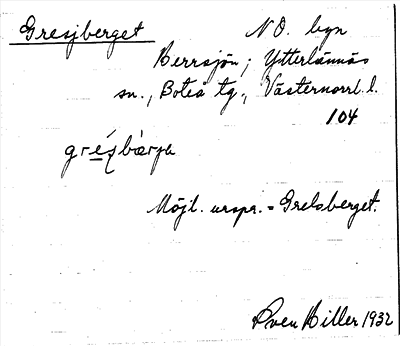 Gresjberget NO. byn
Herrsjön; Ytterlännäs
sn., Boteå tg., Västernorrl. l.
104
Möjl. urspr. = Grelsberget.
Sven Hiller 1932